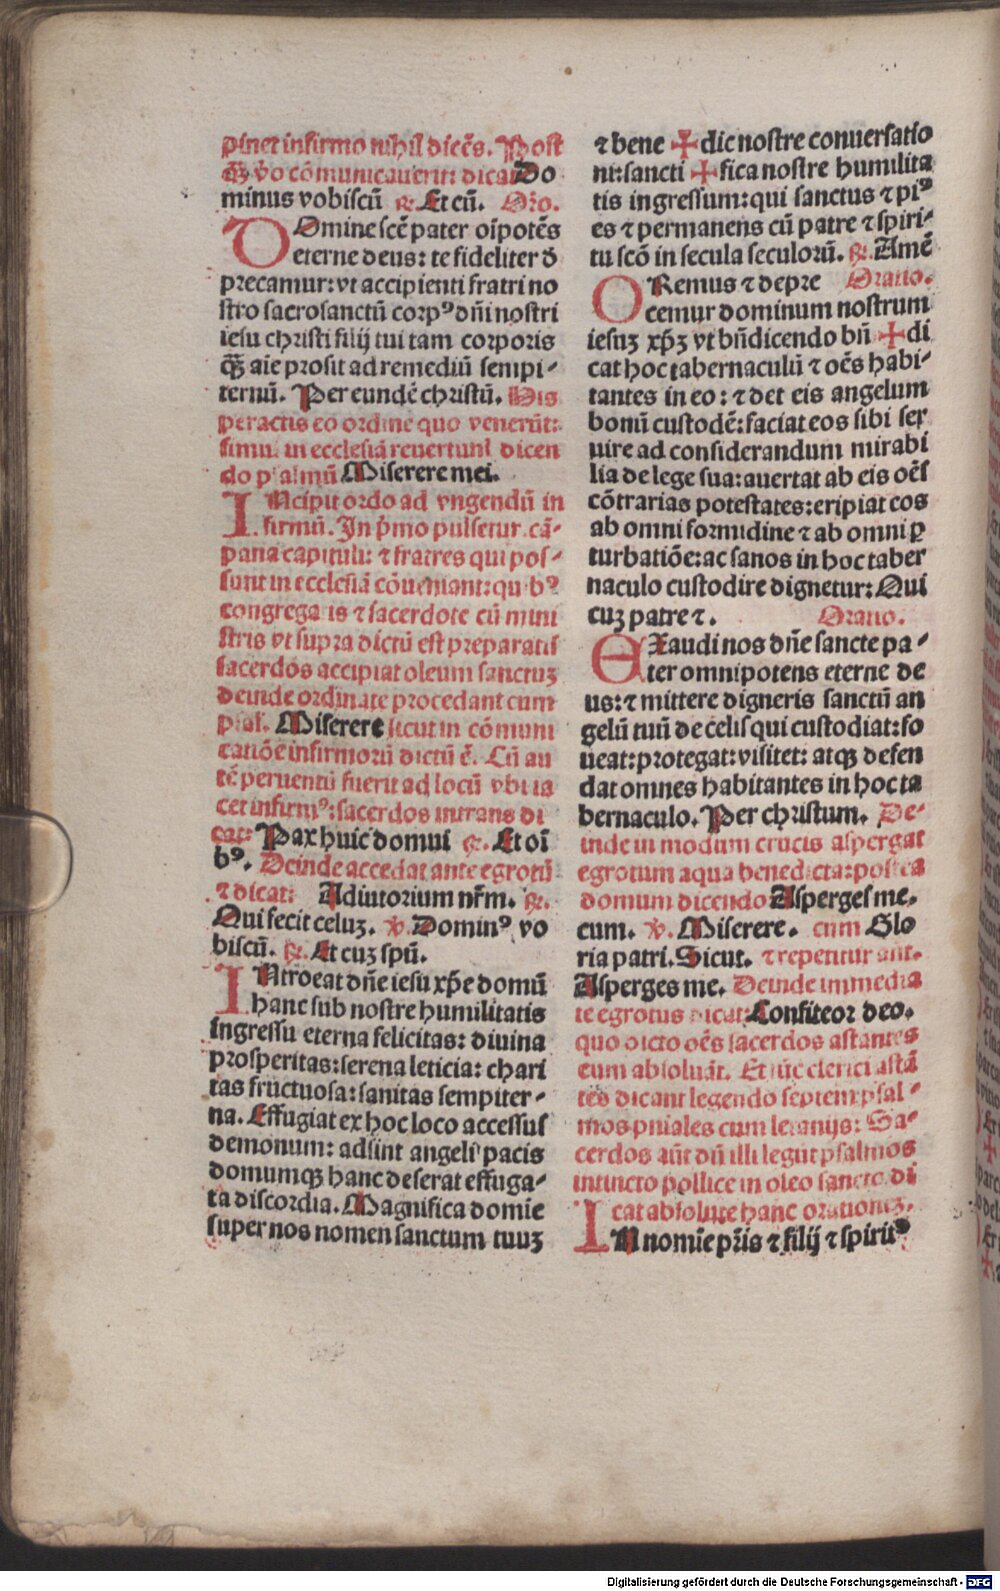 pinet infirmo nihil dicẽs. Post
q̃ v̊o cõmunicauerit: dicat Do
minus vobiscũ ℟. Et cũ. Oro.
DOmine scẽ pater oĩpotẽs
eterne deus: te fideliter d̕
precamur: vt accipienti fratri no
stro sacrosanctũ corpꝰ dñi nostri
iesu christi filij tui tam corporis
q̃ aĩe prosit ad remediũ sempi-
ternũ. Per eundẽ christũ. His
peractis eo ordine quo venerũt:
simul in ecclesiã reuertunt dicen
do psalmũ Miserere mei.
INcipit ordo ad vngendũ in
firmũ. In p̃mo pulsetur cã-
pana capituli: ⁊ fratres qui pos-
sunt in ecclesiã cõueniant: quibꝰ
congregatis ⁊ sacerdote cũ mini
stris vt supra dictũ est preparatis
sacerdos accipiat oleum sanctuꝫ
deinde ordinate procedant cum
psal. Miserere sicut in cõmuni
catiõe infirmorũ dictũ ẽ. Cũ au
tẽ peruentũ fuerit ad locũ vbi ia
cet infirmꝰ: sacerdos intrans di
cat: Pax huic domui ℟. Et oĩ
bꝰ. Deinde accedat ante egrotũ
⁊ dicat: Adiutorium nr̃m. ℟.
Qui fecit celuꝫ. ℣. Dominꝰ vo
biscũ. ℟. Et cuꝫ spũ.
INtroeat dñe iesu xp̃e domũ
hanc sub nostre humilitatis
ingressu eterna felicitas: diuina
prosperitas: serena leticia: chari
tas fructuosa: sanitas sempiter-
na. Effugiat ex hoc loco accessus
demonum: adsint angeli pacis
domumqꝫ hanc deserat effuga-
ta discordia. Magnifica domĩe
super nos nomen sanctum tuuꝫ
⁊ bene ✠ dic nostre conuersatio
ni: sancti ✠ fica nostre humilita
tis ingressum: qui sanctus ⁊ piꝰ
es ⁊ permanens cũ patre ⁊ spiri-
tu scõ in secula seculorũ. ℟. Amẽ
ORemus ⁊ depre Oratio.
cemur dominum nostrum
iesuꝫ xp̃ꝫ vt bñdicendo bñ ✠ di
cat hoc tabernaculũ ⁊ oẽs habi-
tantes in eo: ⁊ det eis angelum
bonũ custodẽ: faciat eos sibi ser
uire ad considerandum mirabi
lia de lege sua: auertat ab eis oẽs
cõtrarias potestates: eripiat eos
ab omni formidine ⁊ ab omni ꝑ
turbatiõe: ac sanos in hoc taber
naculo custodire dignetur: Qui
cuꝫ patre ⁊. Oratio.
EXaudi nos dñe sancte pa-
ter omnipotens eterne de
us: ⁊ mittere digneris sanctũ an
gelũ tuũ de celis qui custodiat: fo
ueat: protegat: visitet: atqꝫ defen
dat omnes habitantes in hoc ta
bernaculo. Per christum. De-
inde in modum crucis aspergat
egrotum aqua benedicta: postea
domum dicendo Asperges me.
cum. ℣. Miserere. cum Glo
ria patri. Sicut. ⁊ repetitur ant.
Asperges me. Deinde immedia
te egrotus dicat: Confiteor deo.
quo dicto oẽs sacerdos astantes
eum absoluãt. Et tũc clerici astã
tes dicant legendo septem psal-
mos pniales cum letanijs: Sa-
cerdos aũt dũ illi legũt psalmos
intincto pollice in oleo sancto di
cat absolute hanc orationeꝫ.
IN nomĩe pr̃is ⁊ filij ⁊ spiritꝰ
Digitalisierung gefördert durch die Deutsche Forschungsgemeinschaft - DFG